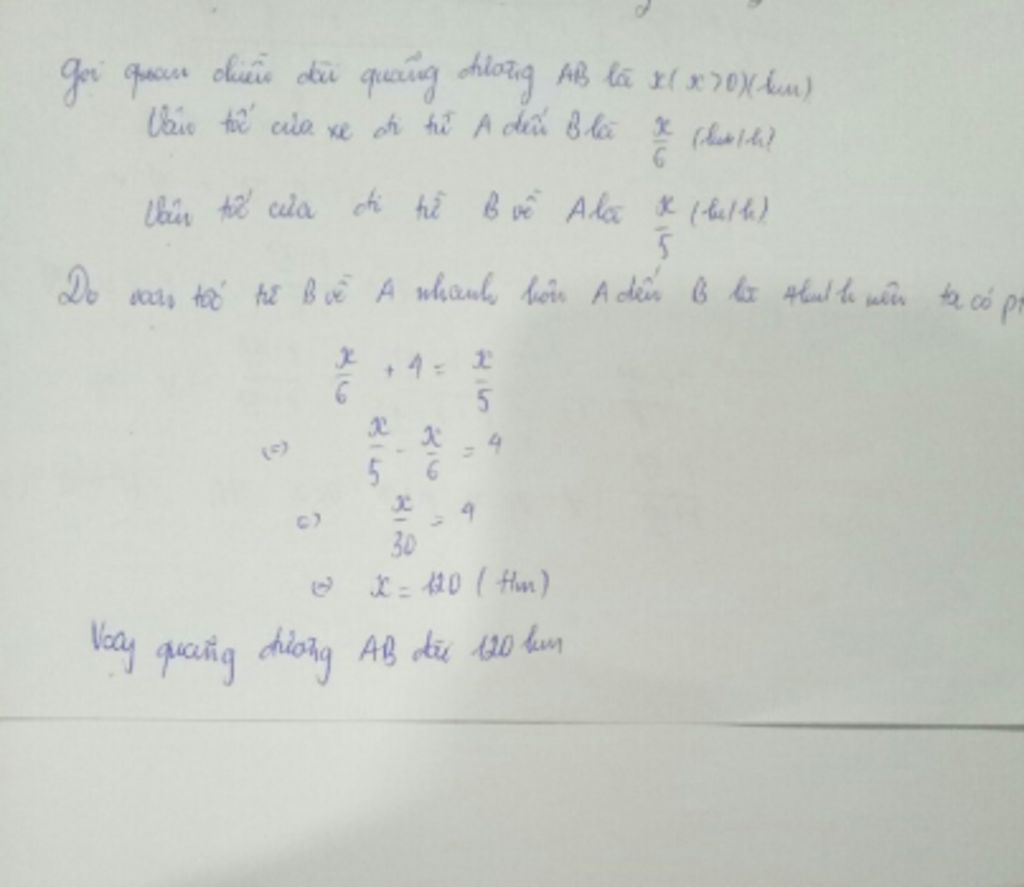 Gọi quan chiều dài quãng đường AB là x (x>0)(km)
Vận tốc của xe đi từ A đến B là x/6 (km/h)
Vận tốc của đi từ B về A là x/5 (km/h)
Do vận tốc từ B về A nhanh hơn A đến B là 4km/h nên ta có pt
x/6 + 4 = x/5
(=) x/5 - x/6 = 4
(=) x/30 = 4
(=) x = 120 (tm)
Vậy quãng đường AB dài 120 km